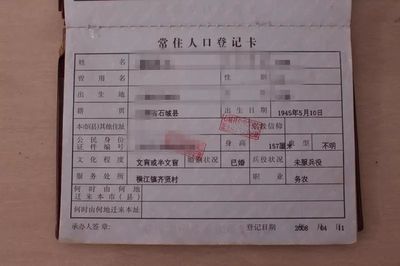 常住人口登记卡
姓 名
曾用名 性
出生地
籍 贯 省石城县 出生日期 1945年5月10日
本市(县)其他住址 宗教信仰
公民身份证件编号 身高 157厘米 血型 不明
文化程度 文盲或半文盲 婚姻状况 已婚 兵役状况 未服兵役
服务处所 横江镇齐贤村 职业 务农
何时由何地迁来本市(县)
何时由何地迁来本址
承办人签章: 登记日期 2008 04 11